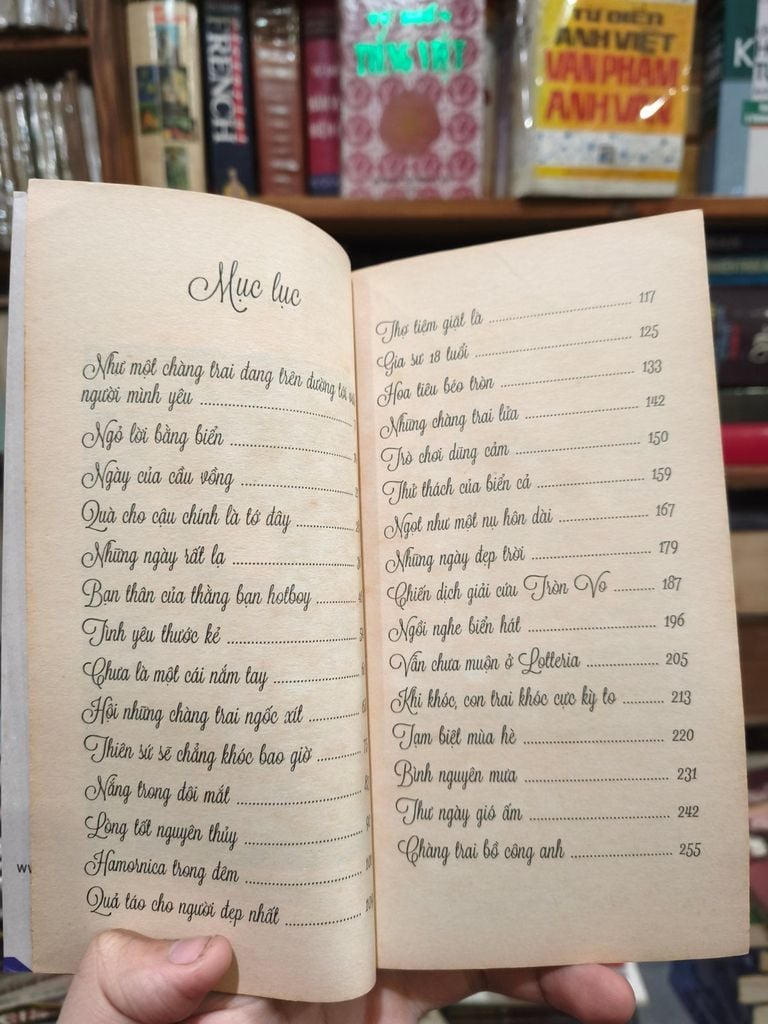 FRENCH
TIẾNG VIỆT
TỪ ĐIỂN
ANH VIỆT
VĂN PHẠM
ANH VĂN
Mục lục
Như một chàng trai đang trên đường tới
người mình yêu ........................................
Ngỏ lời bằng biển ...................................
Ngày của cầu vồng ...............................
Quà cho cậu chính là tớ đây ................
Những ngày rất lạ ..................................
Bạn thân của thằng bạn hotboy ..........
Tình yêu thước kẻ ..................................
Chưa là một cái nắm tay ......................
Hội những chàng trai ngốc xít ............
Thiên sứ sẽ chẳng khóc bao giờ ..........
Nắng trong đôi mắt ...............................
Lòng tốt nguyên thủy ............................
Hamornica trong đêm ............................
Quả táo cho người đẹp nhất ................
Thợ tiệm giặt là ...................................... 117
Gia sư 18 tuổi .......................................... 125
Hoa tiêu béo tròn .................................... 133
Những chàng trai lửa ............................. 142
Trò chơi dũng cảm .................................. 150
Thử thách của biển cả ............................ 159
Ngọt như một nụ hôn dài ...................... 167
Những ngày đẹp trời ............................... 179
Chiến dịch giải cứu Tròn Vo .......... 187
Ngồi nghe biển hát .................................. 196
Vẫn chưa muộn ở Lotteria .................... 205
Khi khóc, con trai khóc cực kỳ to .......... 213
Tạm biệt mùa hè ..................................... 220
Bình nguyên mưa .................................... 231
Thư ngày gió ấm ..................................... 242
Chàng trai bồ công anh .......................... 255